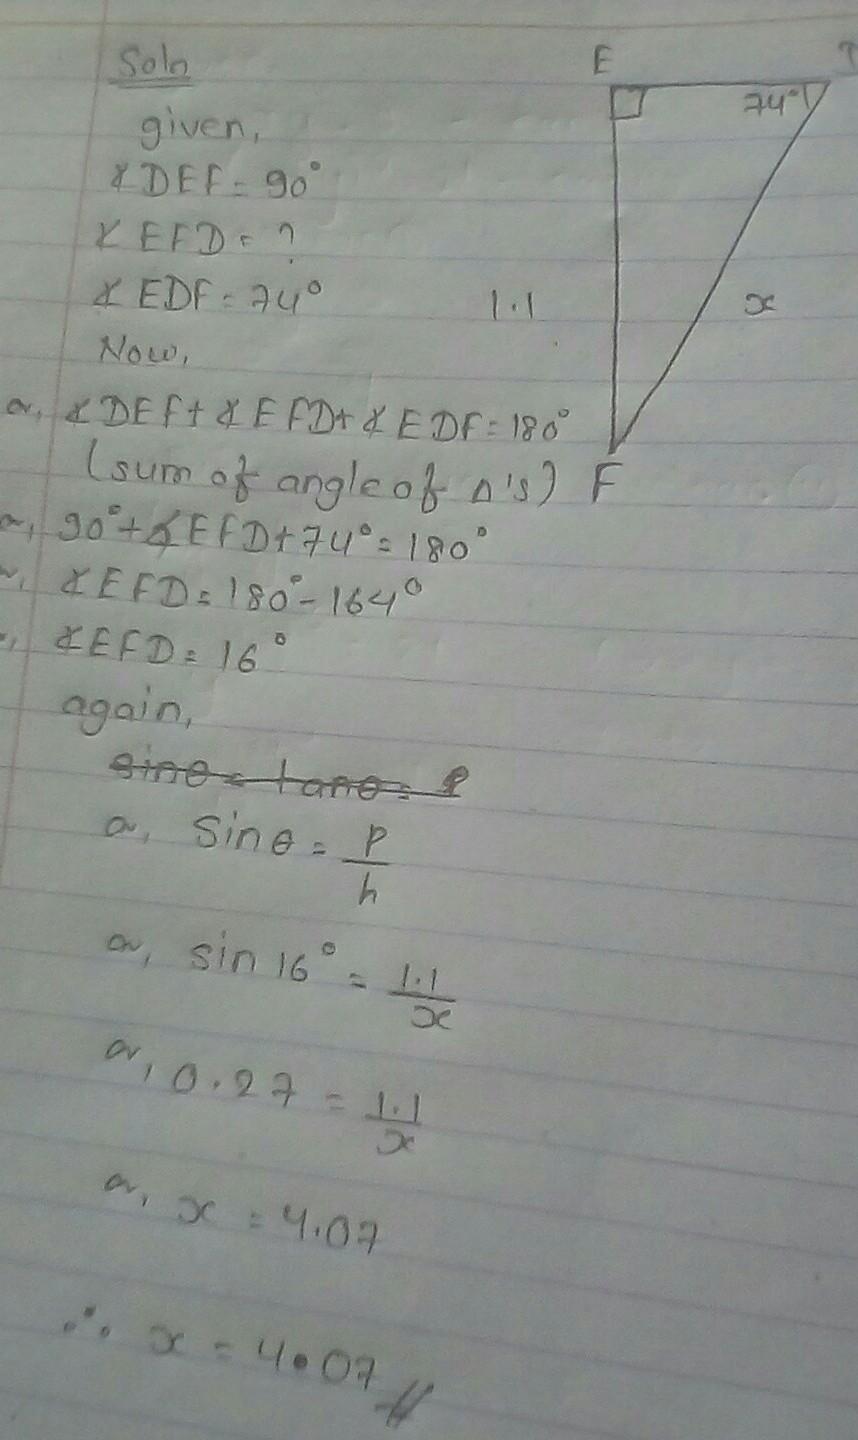 Soln
given,
∡DEF = 90°
∡EFD = ?
∡EDF = 74°
Now,
or, ∡DEF + ∡EFD + ∡EDF = 180°
(sum of angle of Δ's)
or, 90° + ∡EFD + 74° = 180°
or, ∡EFD = 180° - 164°
or, ∡EFD = 16°
again,
sinθ = tanθ = P
or, sinθ = P/h
or, sin 16° = 1.1/x
or, 0.27 = 1.1/x
or, x = 4.07
∴ x = 4.07
E
74°
1.1
x
F